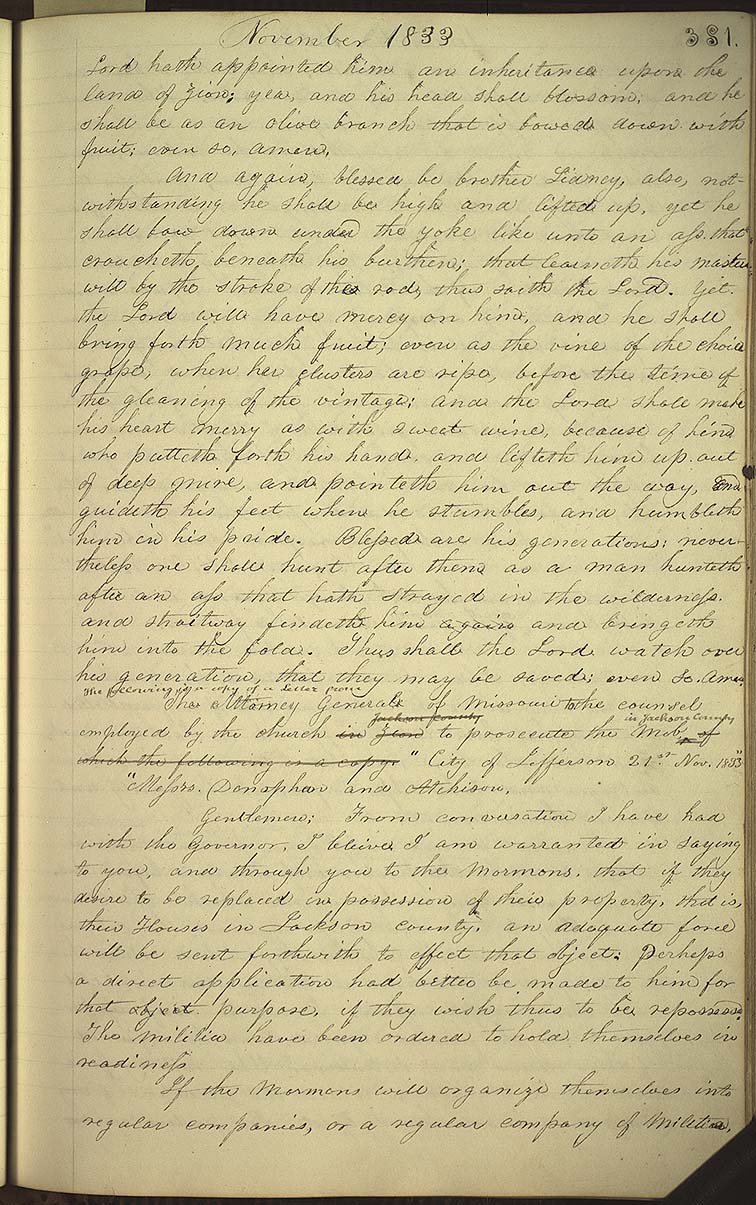 November 1833
381.
Lord hath appointed him an inheritance upon the
land of Zion; yea, and his head shall blossom, and he
shall be as an olive branch that is bowed down with
fruit; even so, amen.
And again, blessed be brother Sidney, also, not-
withstanding he shall be high and lifted up, yet he
shall bow down under the yoke like unto an ass that
croucheth beneath his burthen; that learneth his master's
will by the stroke of the rod, thus saith the Lord. Yet
the Lord will have mercy on him, and he shall
bring forth much fruit; even as the vine of the choice
grape, when her clusters are ripe, before the time of
the gleaning of the vintage; and the Lord shall make
his heart merry as with sweet wine, because of him
who putteth forth his hand, and lifteth him up out
of deep mire, and pointeth him out the way, and
guideth his feet when he stumbles, and humbleth
him in his pride. Blessed are his generations; never-
theless one shall hunt after them as a man hunteth
after an ass that hath strayed in the wilderness.
and straitway findeth him again and bringeth
him into the fold. Thus shall the Lord watch over
his generation, that they may be saved; even so. Amen.
The following is a copy of a Letter from
The Attorney General of Missouri to the counsel
Jackson County in Jackson County
employed by the church in Zion to prosecute the Mob, of
which the following is a copy. "City of Jefferson 21st Nov. 1833"
"Messrs. Doniphan and Atchison,
Gentlemen; From conversation I have had
with the Governor, I believe I am warranted in saying
to you, and through you to the Mormons, that if they
desire to be replaced in possession of their property, that is,
their Houses in Jackson county, an adequate force
will be sent forthwith to effect that object: Perhaps
a direct application had better be made to him for
that object purpose, if they wish thus to be repossessed.
The militia have been ordered to hold themselves in
readiness
If the Mormons will organize themselves into
regular companies, or a regular company of Militia,